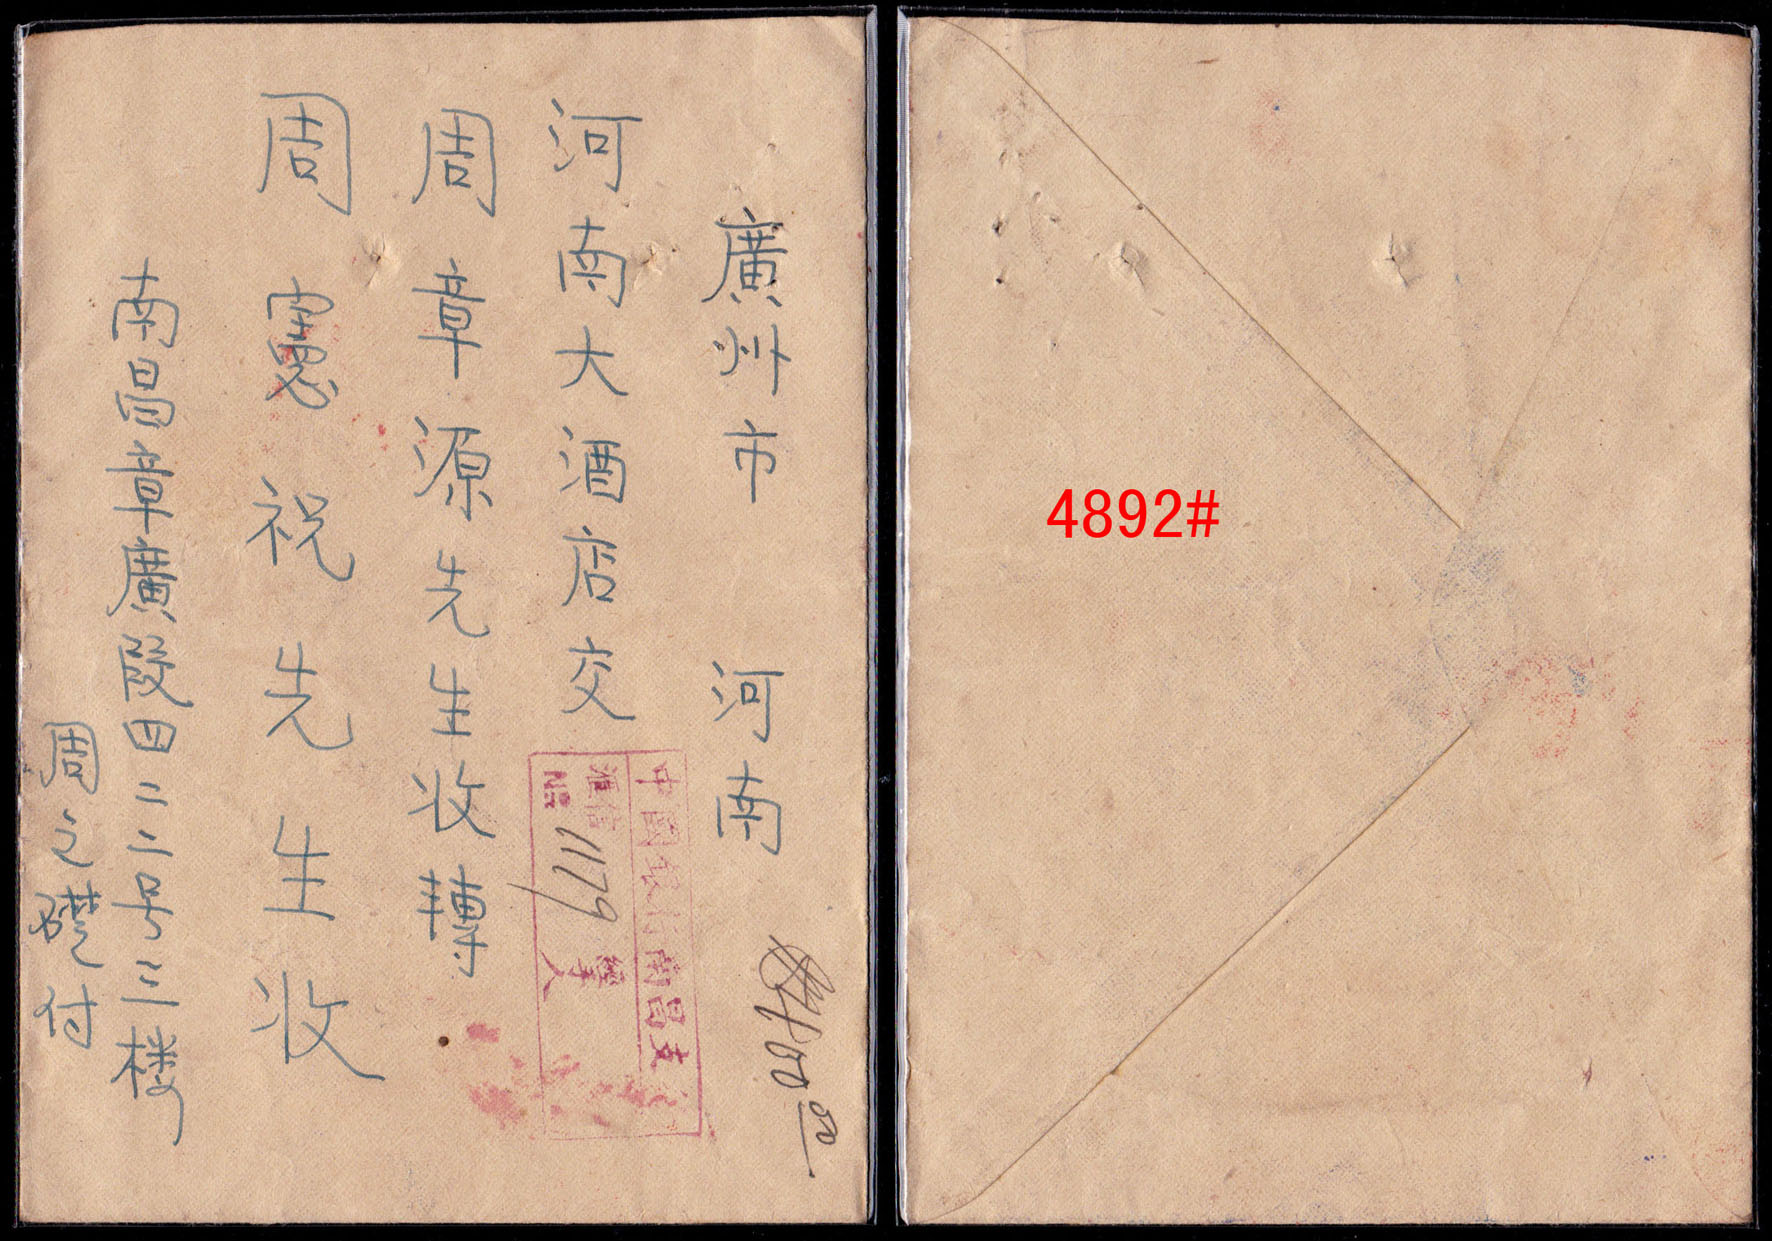 廣州市 河南
河南大酒店交
周章源先生收轉
周憲祝先生收
南昌章廣段四二二号三楼
周之礎付
中國銀行南昌支
滙信
NO 1179
經手人
4892#